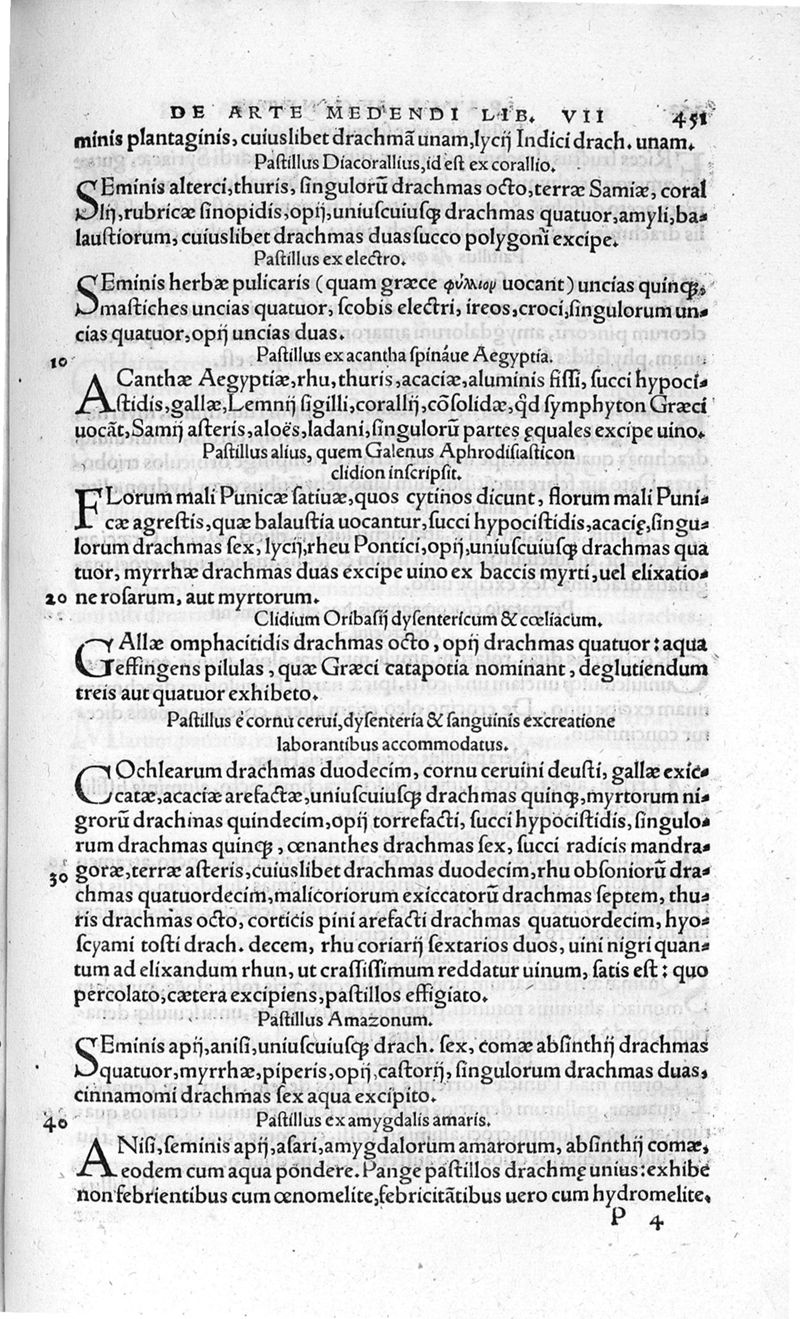 DE ARTE MEDENDI LIB. VII 451
minis plantaginis, cuiuslibet drachmã unam, lycij Indici drach. unam.
Pastillus Diacorallius, id est ex corallio.
SEminis alterci, thuris, singulorũ drachmas octo, terræ Samiæ, coral
lij, rubricæ sinopidis, opij, uniuscuiusq; drachmas quatuor, amyli, ba-
laustiorum, cuiuslibet drachmas duas succo polygoni excipe.
Pastillus ex electro.
SEminis herbæ pulicaris (quam græce ψύλλιον uocant) uncias quinq;,
mastiches uncias quatuor, scobis electri, ireos, croci, singulorum un-
cias quatuor, opij uncias duas.
10 Pastillus ex acantha spináue Aegyptia.
ACanthæ Aegyptiæ, rhu, thuris, acaciæ, aluminis fissi, succi hypoci-
stidis, gallæ, Lemnij sigilli, corallij, cõsolidæ, qđ symphyton Græci
uocãt, Samij asteris, aloës, ladani, singulorũ partes ęquales excipe uino.
Pastillus alius, quem Galenus Aphrodisiasticon
clidion inscripsit.
FLorum mali Punicæ satiuæ, quos cytinos dicunt, florum mali Puni-
cæ agrestis, quæ balaustia uocantur, succi hypocistidis, acacię, singu-
lorum drachmas sex, lycij, rheu Pontici, opij, uniuscuiusq; drachmas qua
tuor, myrrhæ drachmas duas excipe uino ex baccis myrti, uel elixatio-
20 ne rosarum, aut myrtorum.
Clidium Oribasij dysentericum & cœliacum.
GAllæ omphacitidis drachmas octo, opij drachmas quatuor: aqua
effingens pilulas, quæ Græci catapotia nominant, deglutiendum
treis aut quatuor exhibeto.
Pastillus è cornu cerui, dysenteria & sanguinis excreatione
laborantibus accommodatus.
COchlearum drachmas duodecim, cornu ceruini deusti, gallæ exic-
catæ, acaciæ arefactæ, uniuscuiusq; drachmas quinq;, myrtorum ni-
grorũ drachmas quindecim, opij torrefacti, succi hypocistidis, singulo-
rum drachmas quinq;, œnanthes drachmas sex, succi radicis mandra-
30 goræ, terræ asteris, cuiuslibet drachmas duodecim, rhu obsoniorũ dra-
chmas quatuordecim, malicoriorum exiccatorũ drachmas septem, thu-
ris drachmas octo, corticis pini arefacti drachmas quatuordecim, hyo-
scyami tosti drach. decem, rhu coriarij sextarios duos, uini nigri quan-
tum ad elixandum rhun, ut crassissimum reddatur uinum, satis est: quo
percolato, cætera excipiens, pastillos effigiato.
Pastillus Amazonum.
SEminis apij, anisi, uniuscuiusq; drach. sex, comæ absinthij drachmas
quatuor, myrrhæ, piperis, opij, castorij, singulorum drachmas duas,
cinnamomi drachmas sex aqua excipito.
40 Pastillus ex amygdalis amaris.
ANisi, seminis apij, asari, amygdalorum amarorum, absinthij comæ,
eodem cum aqua pondere. Pange pastillos drachmę unius: exhibe
non febrientibus cum œnomelite, febricitãtibus uero cum hydromelite.
P 4